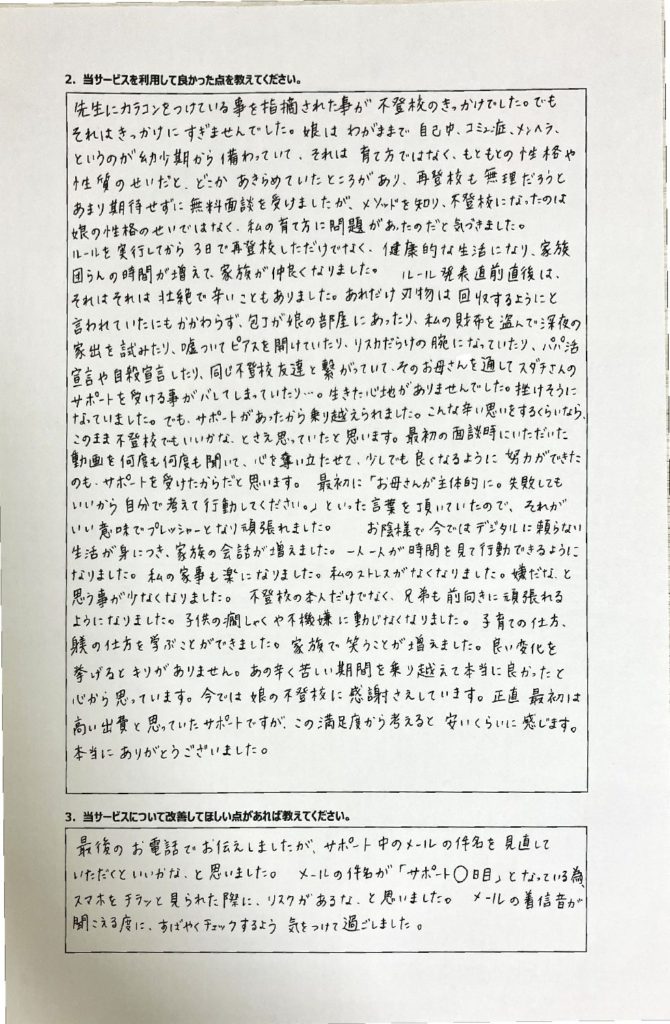 2. 当サービスを利用して良かった点を教えてください。
先生にカラコンをつけている事を指摘された事が 不登校のきっかけでした。でも
それはきっかけにすぎませんでした。娘は わがままで 自己中、コミュ症、メンヘラ、
というのが幼少期から 備わっていて、それは 育て方ではなく、もともとの性格や
性質のせいだと、どこか あきらめていたところがあり、再登校も 無理だろうと
あまり期待せずに無料面談を受けましたが、メソッドを知り、不登校になったのは
娘の性格のせいではなく、私の育て方に問題があったのだと気づきました。
ルールを実行してから 3日で再登校しただけでなく、健康的な生活になり、家族
団らんの時間が増えて、家族が仲良くなりました。 ルール発表直前直後は、
それはそれは 壮絶で辛いこともありました。あれだけ 刃物は 回収するようにと
言われていたにもかかわらず、包丁が娘の部屋にあったり、私の財布を盗んで深夜の
家出を試みたり、嘘ついてピアスを開けていたり、リスカだらけの腕になっていたり、パパ活
宣言や自殺宣言したり、同じ不登校友達と繋がっていて、そのお母さんを通してスダチさんの
サポートを受ける事がバレてしまっていたり…。生きた心地がありませんでした。挫けそうに
なっていました。でも、サポートがあったから乗り越えられました。こんな辛い思いをするくらいなら、
このまま不登校でもいいかな、とさえ思っていたと思います。最初の面談時にいただいた
動画を何度も何度も聞いて、心を奮い立たせて、少しでも良くなるように 努力ができた
のも、サポートを受けたからだと思います。 最初に「お母さんが主体的に。失敗しても
いいから 自分で考えて行動してください。」といった言葉を頂いていたので、それが
いい意味でプレッシャーとなり頑張れました。 お陰様で 今ではデジタルに頼らない
生活が身につき、家族の会話が増えました。一人一人が時間を見て行動できるように
なりました。私の家事も楽になりました。私のストレスがなくなりました。嫌だな、と
思う事が少なくなりました。 不登校の本人だけでなく、兄弟も前向きに頑張れる
ようになりました。子供の癇しゃくや不機嫌に動じなくなりました。子育ての仕方、
躾の仕方を学ぶことができました。家族で笑うことが増えました。良い変化を
挙げるとキリがありません。あの辛く苦しい期間を乗り越えて本当に良かったと
心から思っています。今では娘の不登校に感謝さえしています。正直 最初は
高い出費と思っていたサポートですが、この満足度から考えると 安いくらいに感じます。
本当にありがとうございました。
3. 当サービスについて改善してほしい点があれば教えてください。
最後のお電話でお伝えしましたが、サポート中のメールの件名を見直して
いただくといいかな、と思いました。 メールの件名が「サポート○日目」となっている為、
スマホをチラッと見られた際に、リスクがあるな、と思いました。 メールの着信音が
聞こえる度に、すばやくチェックするよう 気をつけて過ごしました。